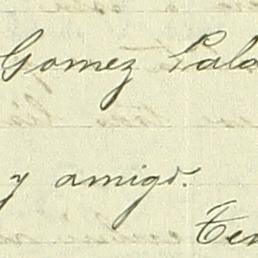 Gomez Pala
y amigo.
Ten